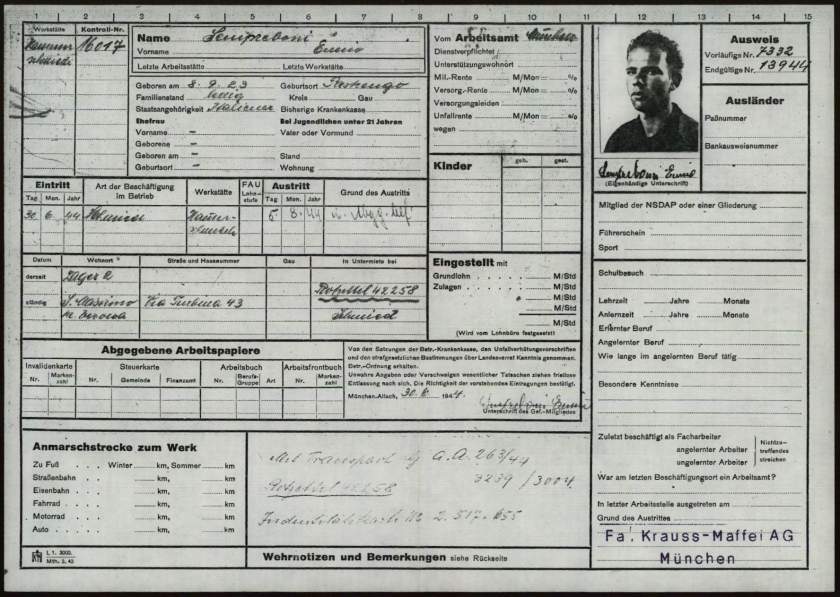 1 2 3 4 5 6 7 8 9 10 11 12 13 14 15
Werkstätte Kontroll-Nr.
16017
Name Sempreboni
Vorname Ennio
Letzte Arbeitsstätte Letzte Werkstätte
Geboren am 8. 9. 23 Geburtsort
Familienstand ledig Kreis Gau
Staatsangehörigkeit Italiener Bisherige Krankenkasse
Ehefrau Bei Jugendlichen unter 21 Jahren
Vorname – Vater oder Vormund
Geborene –
Geboren am – Stand
Geburtsort – Wohnung
Vom Arbeitsamt München
Dienstverpflichtet
Unterstützungswohnort
Mil.-Rente M/Mon= %
Versorg.-Rente M/Mon= %
Versorgungsleiden
Unfallrente M/Mon= %
wegen
Kinder geb. gest.
Sempreboni Ennio
(Eigenhändige Unterschrift)
Ausweis
Vorläufige Nr. 7332
Endgültige Nr. 13944
Ausländer
Paßnummer
Bankausweisnummer
Eintritt Art der Beschäftigung im Betrieb Werkstätte FAU Lohnstufe Austritt Grund des Austritts
Tag Mon. Jahr Tag Mon. Jahr
30. 6. 44 Schmied 5. 8. 44
Datum Wohnort Straße und Hausnummer Gau In Untermiete bei
derzeit Lager Rotzettel 42258
ständig S. Massimo Via Turbina 43 Schmied
Eingestellt mit
Grundlohn M/Std
Zulagen M/Std
M/Std
M/Std
M/Std
(Wird vom Lohnbüro festgesetzt)
Mitglied der NSDAP oder einer Gliederung
Führerschein
Sport
Schulbesuch
Lehrzeit Jahre Monate
Anlernzeit Jahre Monate
Erlernter Beruf
Angelernter Beruf
Wie lange im angelernten Beruf tätig
Besondere Kenntnisse
Abgegebene Arbeitspapiere
Invalidenkarte Steuerkarte Arbeitsbuch Arbeitsfrontbuch
Nr. Markenzahl Nr. Gemeinde Finanzamt Nr. Berufs-Gruppe Art Nr. Markenzahl
Von den Satzungen der Betr.-Krankenkasse, den Unfallverhütungsvorschriften
und den strafgesetzlichen Bestimmungen über Landesverrat Kenntnis genommen.
Betr.-Ordnung erhalten.
Unwahre Angaben oder Verschweigen wesentlicher Tatsachen ziehen fristlose
Entlassung nach sich. Die Richtigkeit der vorstehenden Eintragungen bestätigt.
München-Allach, 30. 6. 1944. Sempreboni Ennio
Unterschrift des Gef.-Mitgliedes
Anmarschstrecke zum Werk
Zu Fuß Winter km, Sommer km
Straßenbahn km, km
Eisenbahn km, km
Fahrrad km, km
Motorrad km, km
Auto km, km
Mit Transport G.A. 263/44
3239 / 3004
Rotzettel 42258
2.517.655
Zuletzt beschäftigt als Facharbeiter
angelernter Arbeiter
ungelernter Arbeiter
Nichtzutreffendes streichen
War am letzten Beschäftigungsort ein Arbeitsamt?
In letzter Arbeitsstelle ausgetreten am
Grund des Austrittes
Fa. Krauss-Maffei AG
München
L 1. 3000.
Mth. 3. 43
Wehrnotizen und Bemerkungen siehe Rückseite